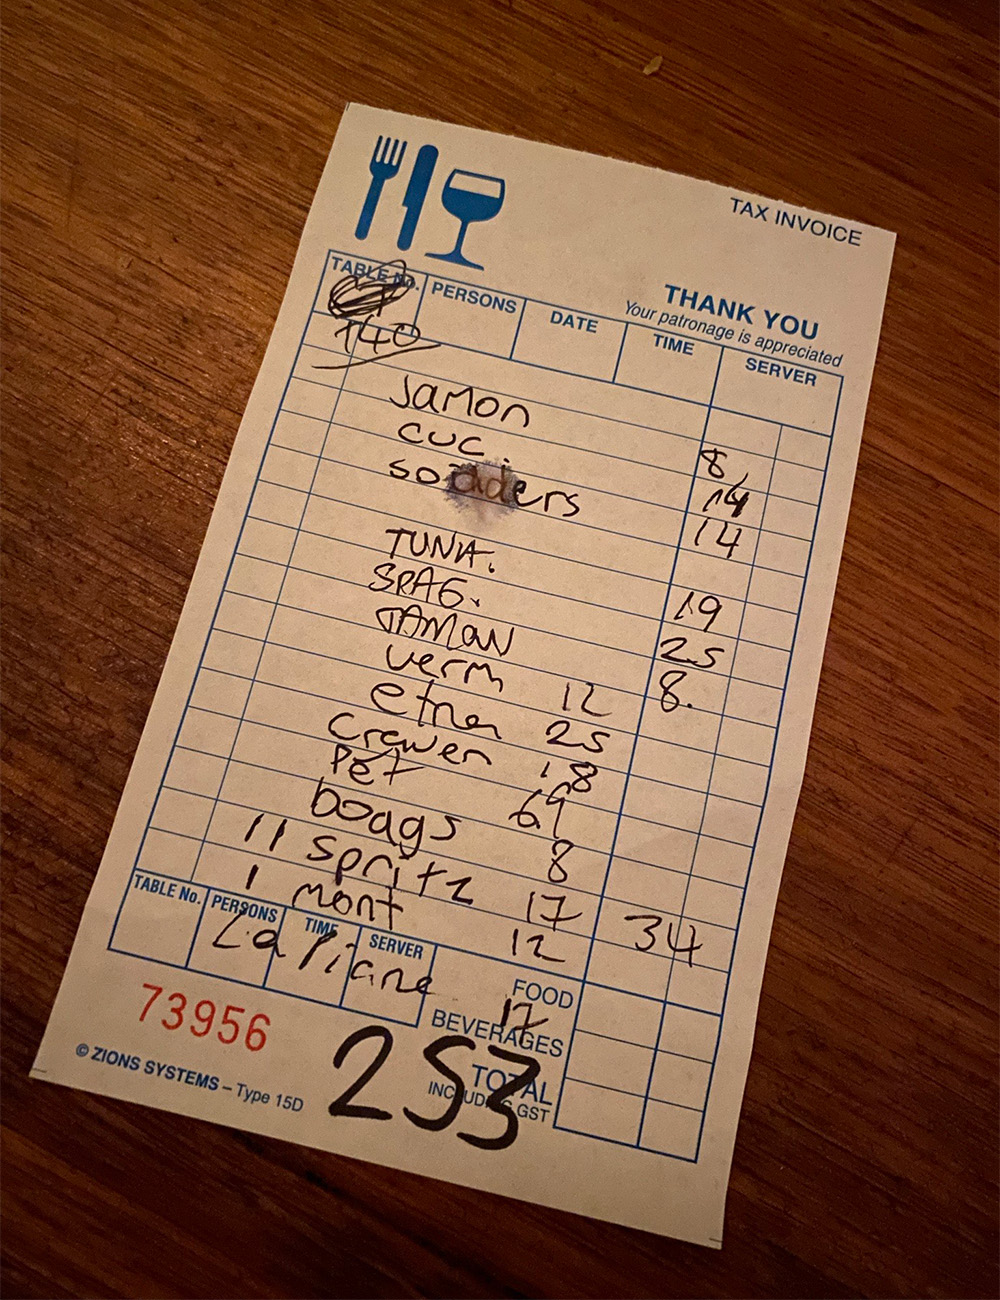 TAX INVOICE
THANK YOU
Your patronage is appreciated
TABLE No. PERSONS DATE TIME SERVER
T40
Jamon 8
cuc. 14
sodders 14
TUNA. 19
SPAG. 25
JAMON 8.
verm 12
etna 25
Crawen 18
Pet 69
boags 8
11 spritz 17 34
1 mont 12
La Piane 17
TABLE No. PERSONS TIME SERVER
FOOD
BEVERAGES
TOTAL
INCLUDING GST
253
73956
© ZIONS SYSTEMS – Type 15D